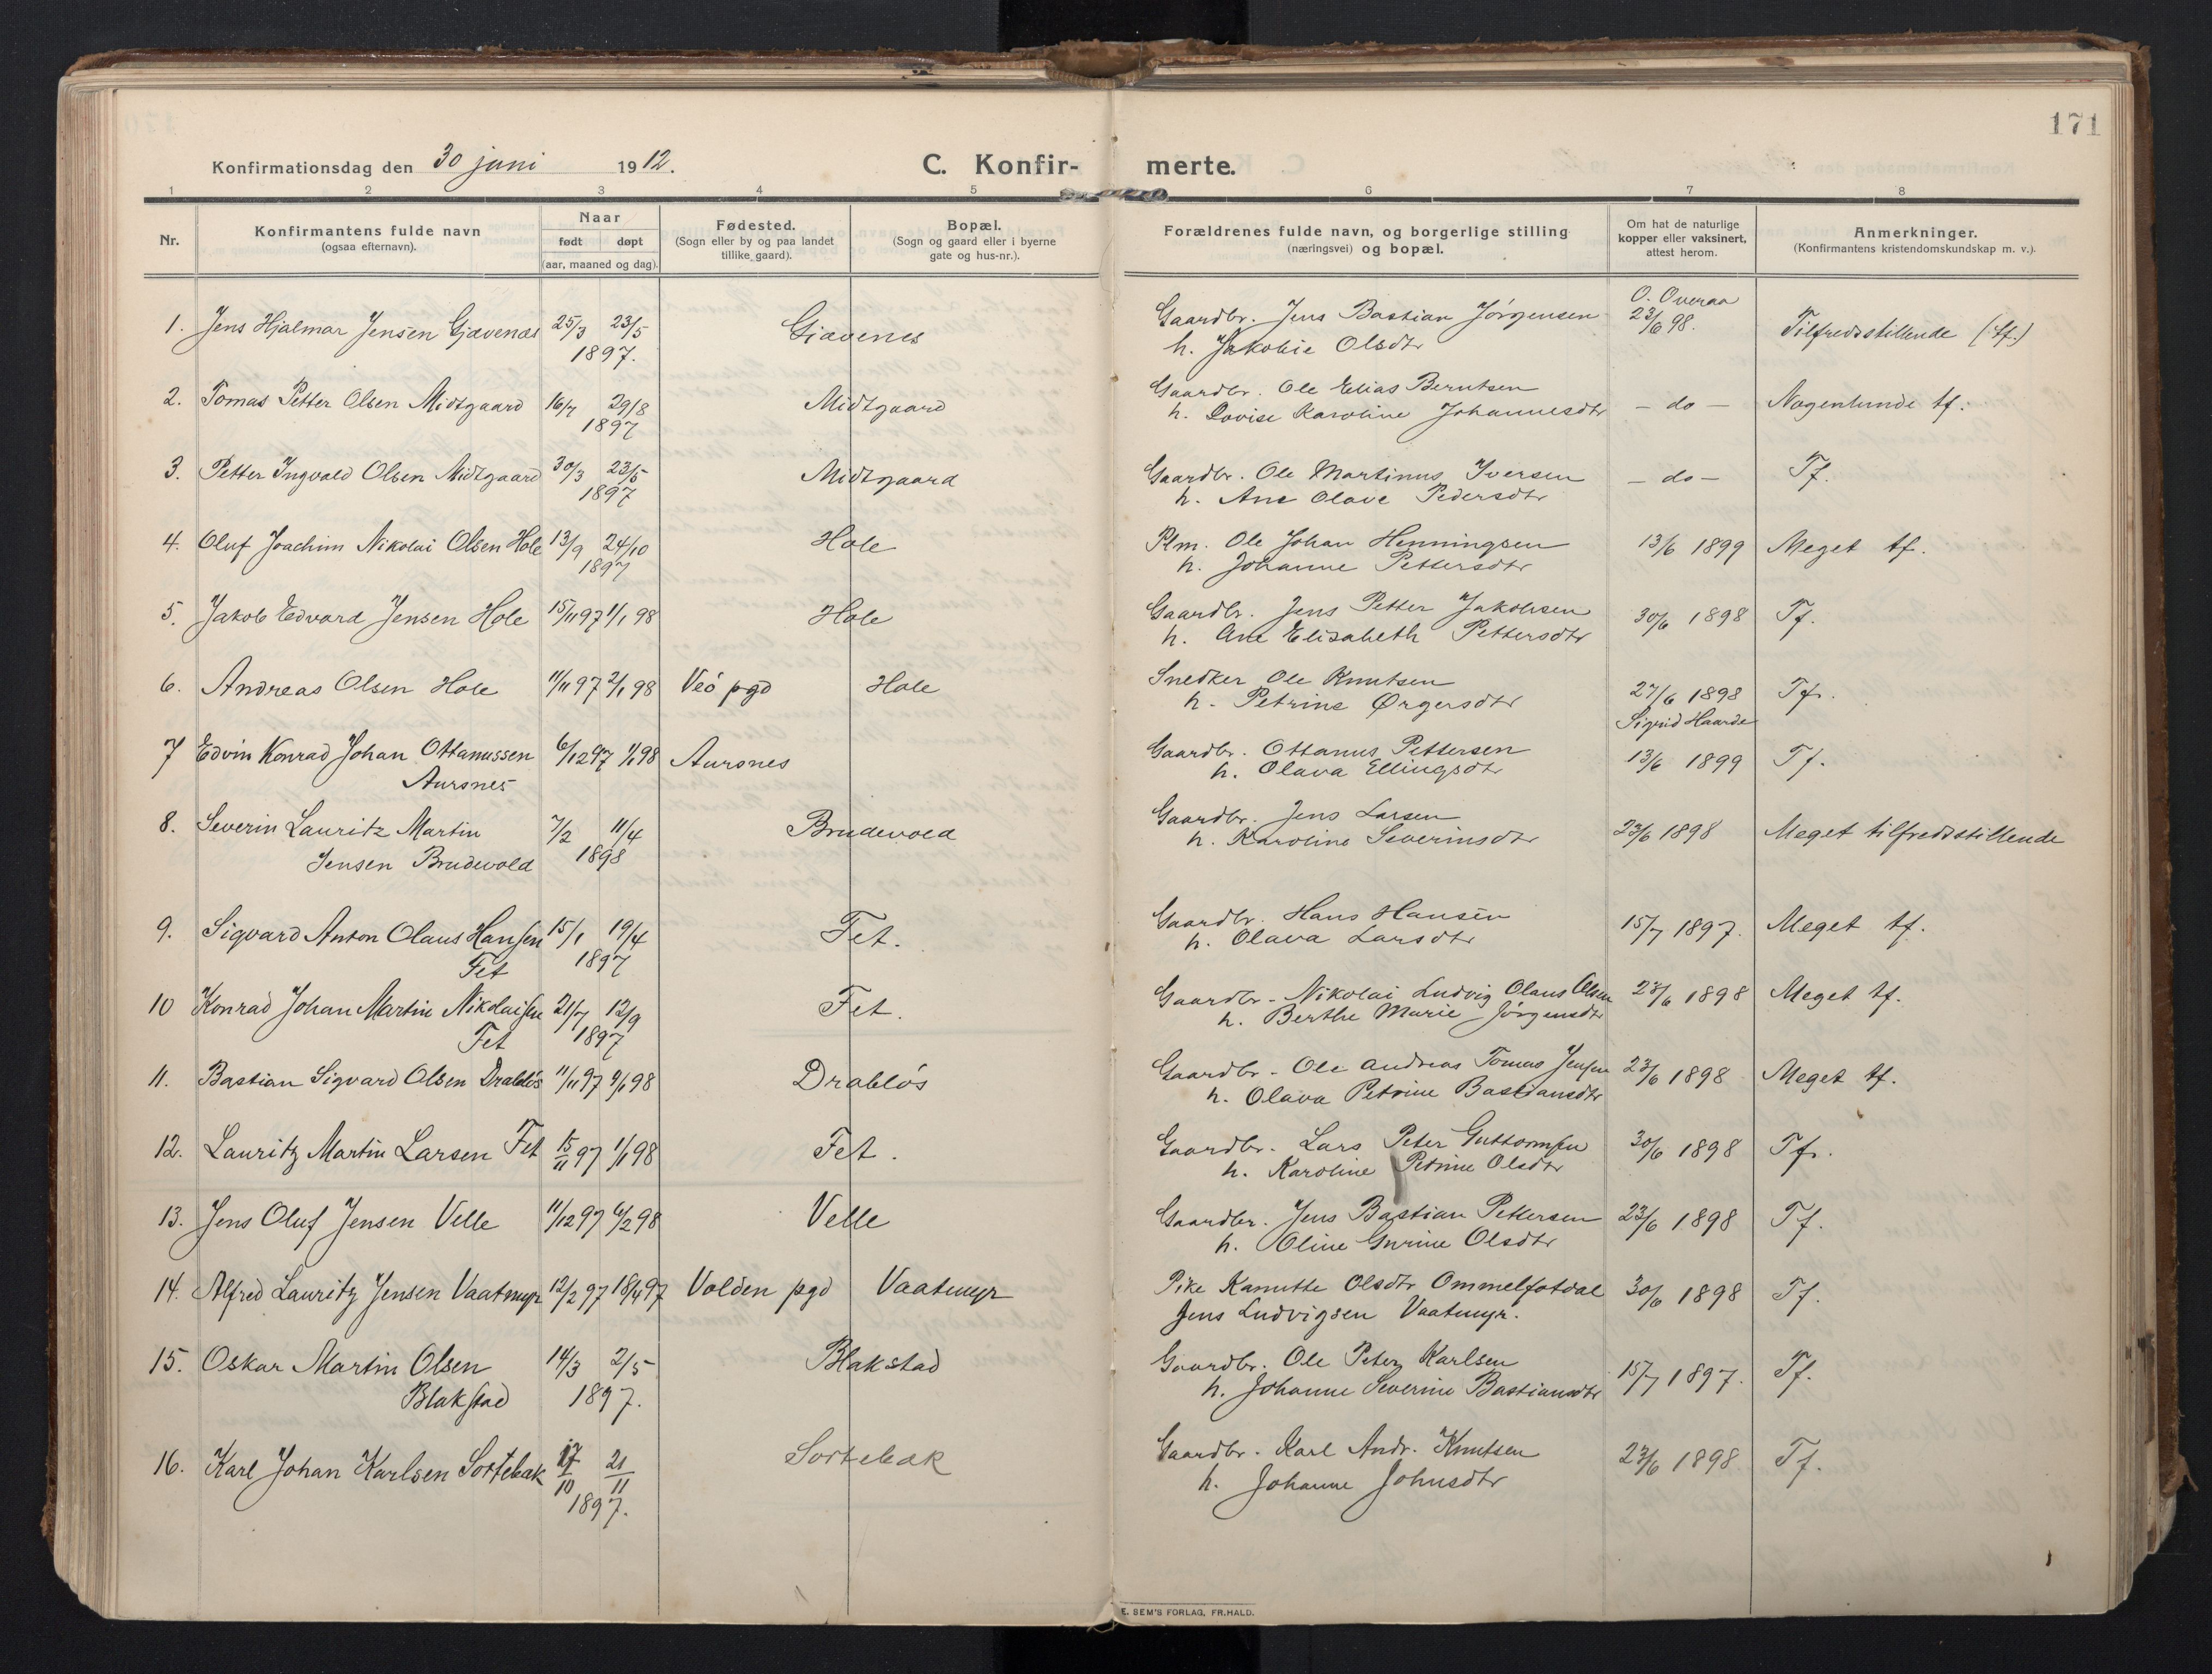 171
Konfirmationsdag den 30 juni 1912.
C. Konfir-
merte.
1 2 3 4 5 6 7 8
Nr.
Konfirmantens fulde navn
(ogsaa efternavn).
Naar
født døpt
(aar, maaned og dag).
Fødested.
(Sogn eller by og paa landet
tillike gaard).
Bopæl.
(Sogn og gaard eller i byerne
gate og hus-nr.).
Forældrenes fulde navn, og borgerlige stilling
(næringsvei) og bopæl.
Om hat de naturlige
kopper eller vaksinert,
attest herom.
Anmerkninger.
(Konfirmantens kristendomskundskap m. v.).
1. Jens Hjalmar Jensen Gjævenes 25/3 23/5
1897.
Gjævenes
Gaardbr. Jens Bastian Jörgensen
h. Jakobie Olsdtr
O. Overaa
23/6 98.
Tilfredsstillende (tf.)
2. Tomas Petter Olsen Midtgaard 16/7 29/8
1897
Midtgaard
Gaardbr. Ole Elias Berntsen
h. Lovise Karoline Johannesdtr
- do -
Nogenlunde tf.
3. Petter Ingvald Olsen Midtgaard 30/3 23/5
1897
Midtgaard
Gaardbr. Ole Martinus Iversen
h. Ane Olave Pedersdtr
- do -
Tf.
4. Oluf Joachim Nikolai Olsen Hole 13/9 24/10
1897
Hole
Plm. Ole Johan Henningsen
h. Johanne Pettersdtr
13/6 1899
Meget tf.
5. Jakob Edvard Jensen Hole 15/11 97 1/1 98
Hole
Gaardbr. Jens Petter Jakobsen
h. Ane Elisabeth Pettersdtr
30/6 1898
Tf.
6. Andreas Olsen Hole 11/11 97 2/1 98 Veö pgd Hole
Snedker Ole Knutsen
h. Petrine Ørgersdtr
27/6 1898
Sigrid Haarde
Tf.
7 Edvin Konrad Johan Ottanussen
Aursnes
6/12 97 1/1 98 Aursnes
Gaardbr. Ottanus Pettersen
h. Olava Ellingsdtr
13/6 1899
Tf.
8. Severin Lauritz Martin
Jensen Brudevold
7/2 11/4
1898
Brudevold
Gaardbr. Jens Larsen
h. Karoline Severinsdtr
23/6 1898
Meget tilfredsstillende
9. Sigvard Anton Olaus Hansen
Fet
15/1 19/4
1897
Fet.
Gaardbr. Hans Hansen
h. Olava Larsdtr
15/7 1897.
Meget tf.
10 Konrad Johan Martin Nikolaisen
Fet
21/7 12/9
1897
Fet.
Gaardbr - Nikolai Ludvig Olaus Olsen
h. Berthe Marie Jörgensdtr
23/6 1898
Meget tf.
11. Bastian Sigvard Olsen Drablös 11/11 97 98
Drablös
Gaardbr - Ole Andreas Tomas Jensen
h. Olava Petrine Bastiansdtr
23/6 1898
Meget tf.
12. Lauritz Martin Larsen Fet 15/11 97 1/1 98
Fet.
Gaardbr. Lars Peter Guttormsen
h. Karoline Petrine Olsdtr
30/6 1898
Tf.
13. Jens Oluf Jensen Velle 11/12 97 6/2 98
Velle
Gaardbr. Jens Bastian Pettersen
h. Oline Gurine Olsdtr
23/6 1898
Tf.
14. Alfred Lauritz Jensen Vaatmyr 12/2 97 18/4 97 Volden pgd Vaatmyr
Pike Kanutte Olsdtr Ommelfotdal
Jens Ludvigsen Vaatmyr.
30/6 1898
Tf.
15. Oskar Martin Olsen
Blakstad
14/3 2/5
1897.
Blakstad
Gaardbr. Ole Peter Karlsen
h. Johanne Severine Bastiansdtr
15/7 1897.
Tf.
16. Karl Johan Karlsen Sortebak 17/10 21/11
1897.
Sortebak
Gaardbr. Karl Andr. Knutsen
h. Johanne Johnsdtr
23/6 1898
Tf.
E. SEM'S FORLAG, FR.HALD.